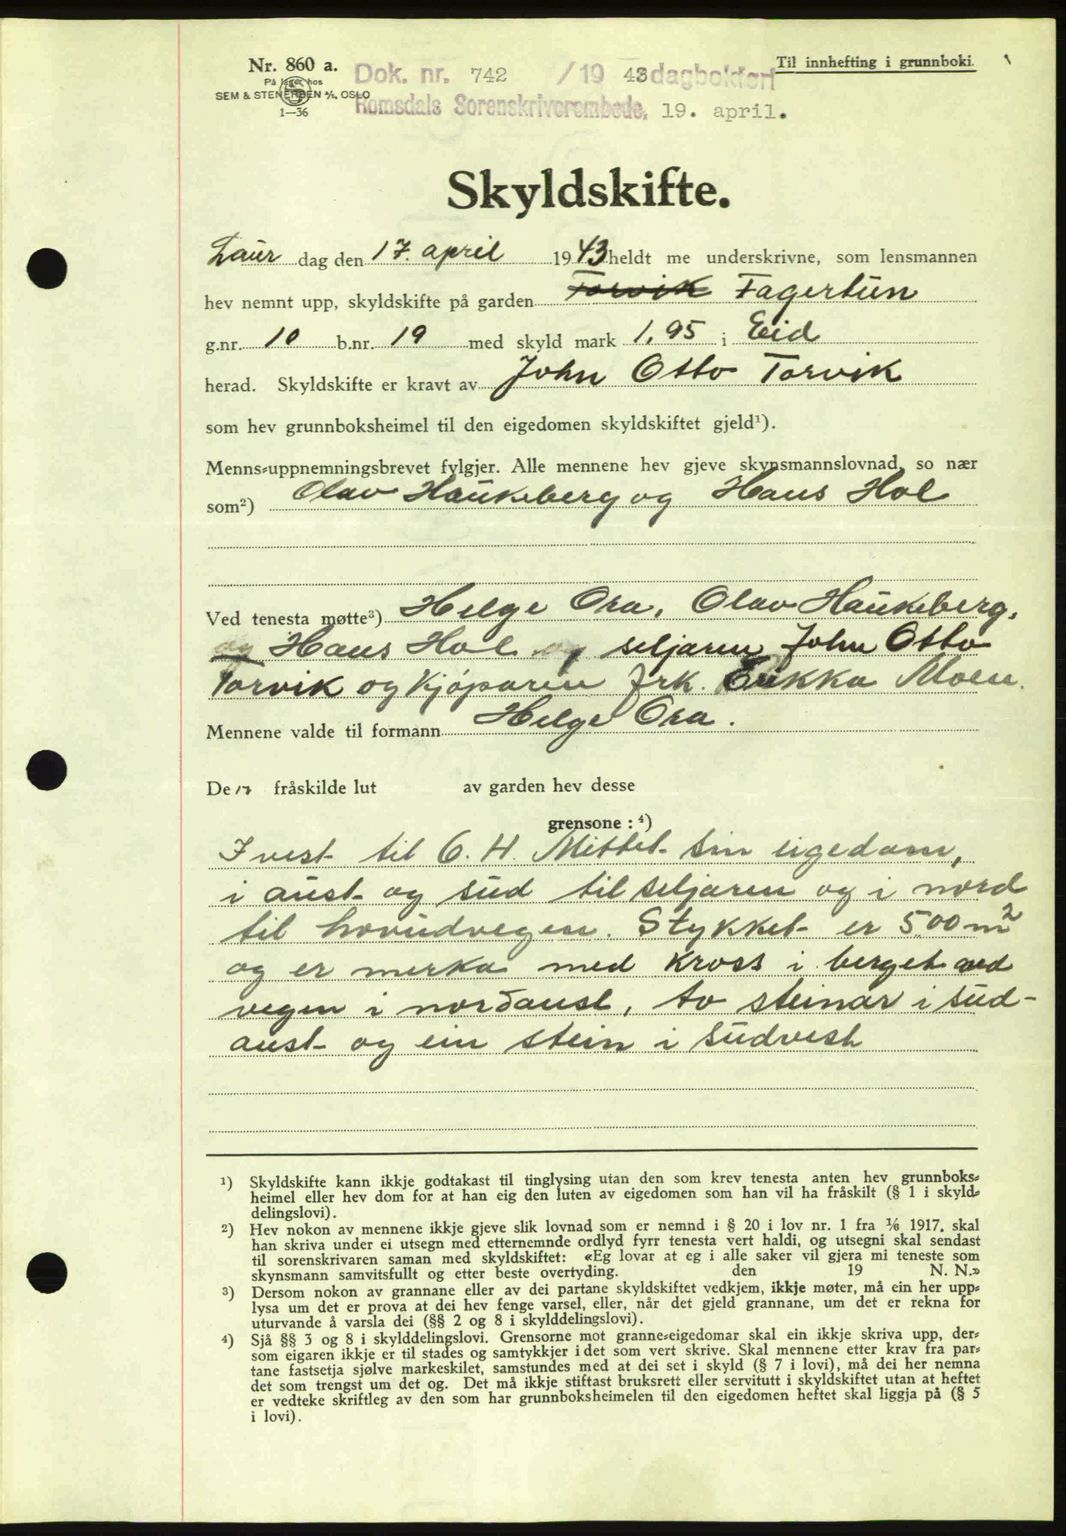 Nr. 860 a.
På lager hos
SEM & STENERSEN A/S, OSLO
1—36
Dok. nr. 742 /19 43 dagbokført
Romsdals Sorenskriverembede, 19. april.
Til innhefting i grunnboki.
Skyldskifte.
Laur dag den 17. april 1943 heldt me underskrivne, som lensmannen
hev nemnt upp, skyldskifte på garden Torvik Fagertun
g.nr. 10 b.nr. 19 med skyld mark 1,95 i Eid
herad. Skyldskifte er kravt av John Otto Torvik
som hev grunnboksheimel til den eigedomen skyldskiftet gjeld¹).
Menns-uppnemningsbrevet fylgjer. Alle mennene hev gjeve skynsmannslovnad, so nær
som²) Olav Haukeberg og Hans Hol
Ved tenesta møtte³) Helge Ora, Olav Haukeberg,
og Hans Hol og seljaren John Otto
Torvik og kjøparen frk. Erikka Moen.
Mennene valde til formann Helge Ora.
De 17 fråskilde lut av garden hev desse
grensone : ⁴)
I vest til O. H. Mittet sin eigedom,
i aust og sud til seljaren og i nord
til hovudvegen. Stykket er 500 m²
og er merka med kross i berget ved
vegen i nordaust, to steinar i sud-
aust og ein stein i sudvest
¹) Skyldskifte kann ikkje godtakast til tinglysing utan den som krev tenesta anten hev grunnboks-
heimel eller hev dom for at han eig den luten av eigedomen som han vil ha fråskilt (§ 1 i skyld-
delingslovi).
²) Hev nokon av mennene ikkje gjeve slik lovnad som er nemnd i § 20 i lov nr. 1 fra 1/6 1917, skal
han skriva under ei utsegn med etternemnde ordlyd fyrr tenesta vert haldi, og utsegni skal sendast
til sorenskrivaren saman med skyldskiftet: «Eg lovar at eg i alle saker vil gjera mi teneste som
skynsmann samvitsfullt og etter beste overtyding. den 19 N. N.»
³) Dersom nokon av grannane eller av dei partane skyldskiftet vedkjem, ikkje møter, må ein her upp-
lysa um det er prova at dei hev fenge varsel, eller, når det gjeld grannane, um det er rekna for
uturvande å varsla dei (§§ 2 og 8 i skylddelingslovi).
⁴) Sjå §§ 3 og 8 i skylddelingslovi. Grensorne mot granne-eigedomar skal ein ikkje skriva upp, der-
som eigaren ikkje er til stades og samtykkjer i det som vert skrive. Skal mennene etter krav fra par-
tane fastsetja sjølve markeskilet, samstundes med at dei set i skyld (§ 7 i lovi), må dei her nemna
det som trengst um det og. Det må ikkje stiftast bruksrett eller servitutt i skyldskiftet utan at heftet
er vedteke skriftleg av den som har grunnboksheimelen til den eigedomen heftet skal liggja på (§ 5
i lovi).